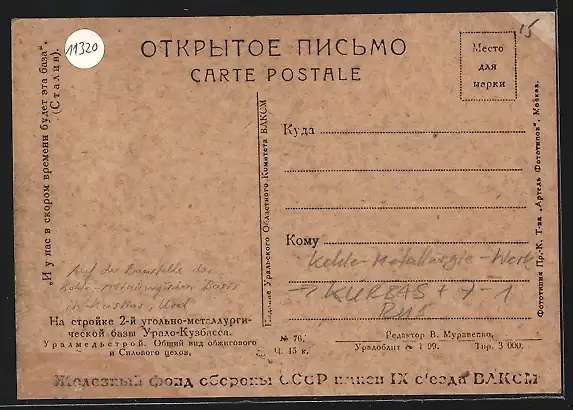 11320
15
ОТКРЫТОЕ ПИСЬМО
CARTE POSTALE
Место
для
марки
„И у нас в скором времени будет эта база“.
(Сталин).
Издание Уральского Областного Комитета ВЛКСМ
Куда
Кому
Auf der Baustelle der
Kohle-Metallurgischen Basis
Ural
Kohle-Metallurgie-Werk
Rus
На стройке 2-й угольно-металлурги-
ческой базы Урало-Кузбасса.
Уралмедьстрой. Общий вид обжигового
и Силового цехов.
№ 76.
Ц. 15 к.
Редактор В. Муравейко,
Уралоблит № 99. Тир. 3 000.
Фототипия Пр.-К. Т-ва „Артель Фототипов“, Москва.
Железный фонд обороны СССР имени IX съезда ВЛКСМ